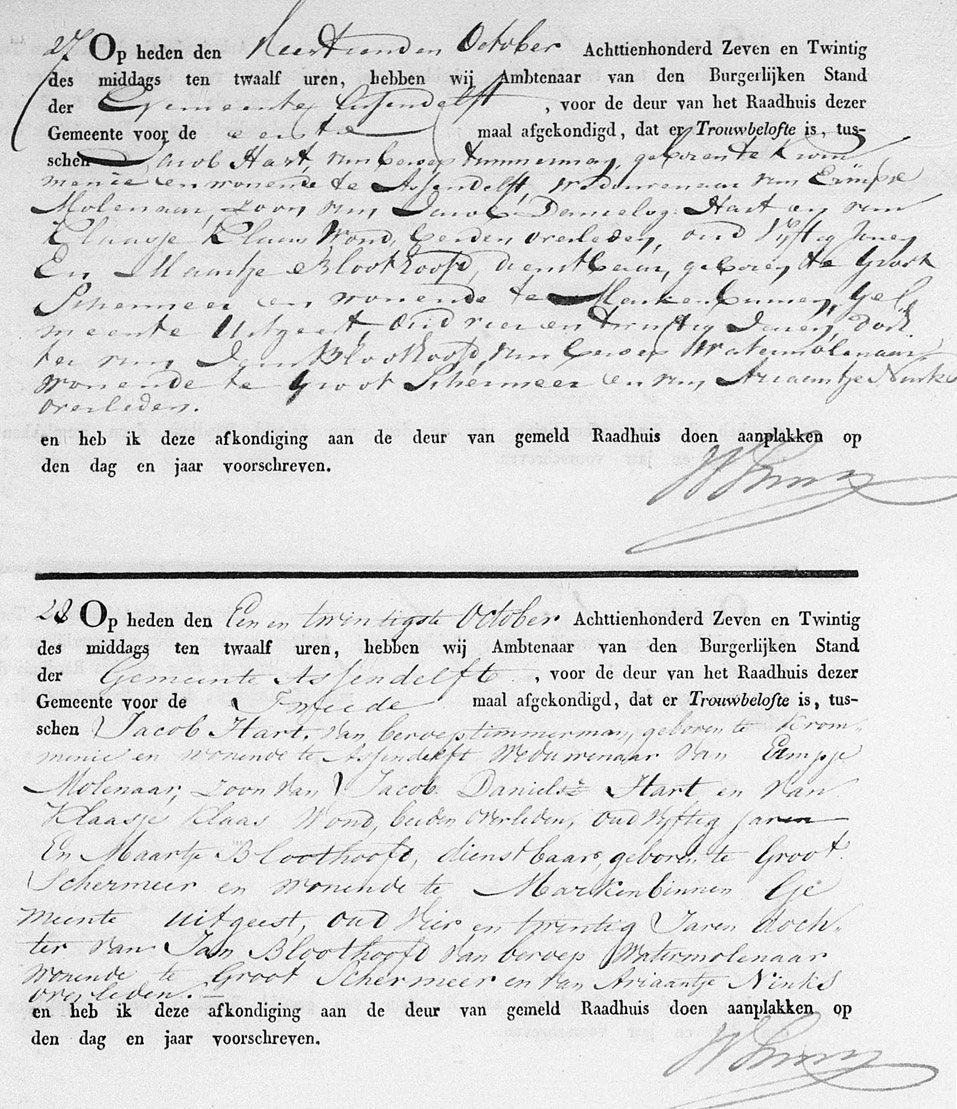 27 Op heden den Veertienden October Achttienhonderd Zeven en Twintig
des middags ten twaalf uren, hebben wij Ambtenaar van den Burgerlijken Stand
der Gemeente Assendelft, voor de deur van het Raadhuis dezer
Gemeente voor de eerste maal afgekondigd, dat er Trouwbelofte is, tus-
schen Jacob Hart, van beroep timmerman, geboren te Krom-
menie en wonende te Assendelft, Weduwenaar van Eimpje
Molenaar, zoon van Jacob Danielsz: Hart en van
Klaasje Klaas Wond, beiden overleden, oud Vijftig Jaren
En Maartje Bloothoofd, dienstbaar, geboren te Groot
Schermeer en wonende te Markenbinnen, Ge=
meente Uitgeest, oud vier en twintig Jaren, doch=
ter van Jan Bloothoofd, van beroep Watermolenaar
wonende te Groot Schermeer en van Ariaantje Ninks
overleden.
en heb ik deze afkondiging aan de deur van gemeld Raadhuis doen aanplakken op
den dag en jaar voorschreven.
28 Op heden den Een en twintigste October Achttienhonderd Zeven en Twintig
des middags ten twaalf uren, hebben wij Ambtenaar van den Burgerlijken Stand
der Gemeente Assendelft, voor de deur van het Raadhuis dezer
Gemeente voor de Tweede maal afgekondigd, dat er Trouwbelofte is, tus-
schen Jacob Hart, van beroep timmerman, geboren te Krom-
menie en wonende te Assendelft Weduwenaar van Eimpje
Molenaar, zoon van Jacob Danielsz Hart en van
Klaasje Klaas Wond, beiden overleden, oud vijftig jaren
En Maartje Bloothoofd, dienstbaar, geboren te Groot
Schermeer en wonende te Markenbinnen Ge
meente Uitgeest, oud Vier en twintig Jaren doch-
ter van Jan Bloothoofd van beroep Watermolenaar
wonende te Groot Schermeer en van Ariaantje Ninks
overleden.
en heb ik deze afkondiging aan de deur van gemeld Raadhuis doen aanplakken op
den dag en jaar voorschreven.